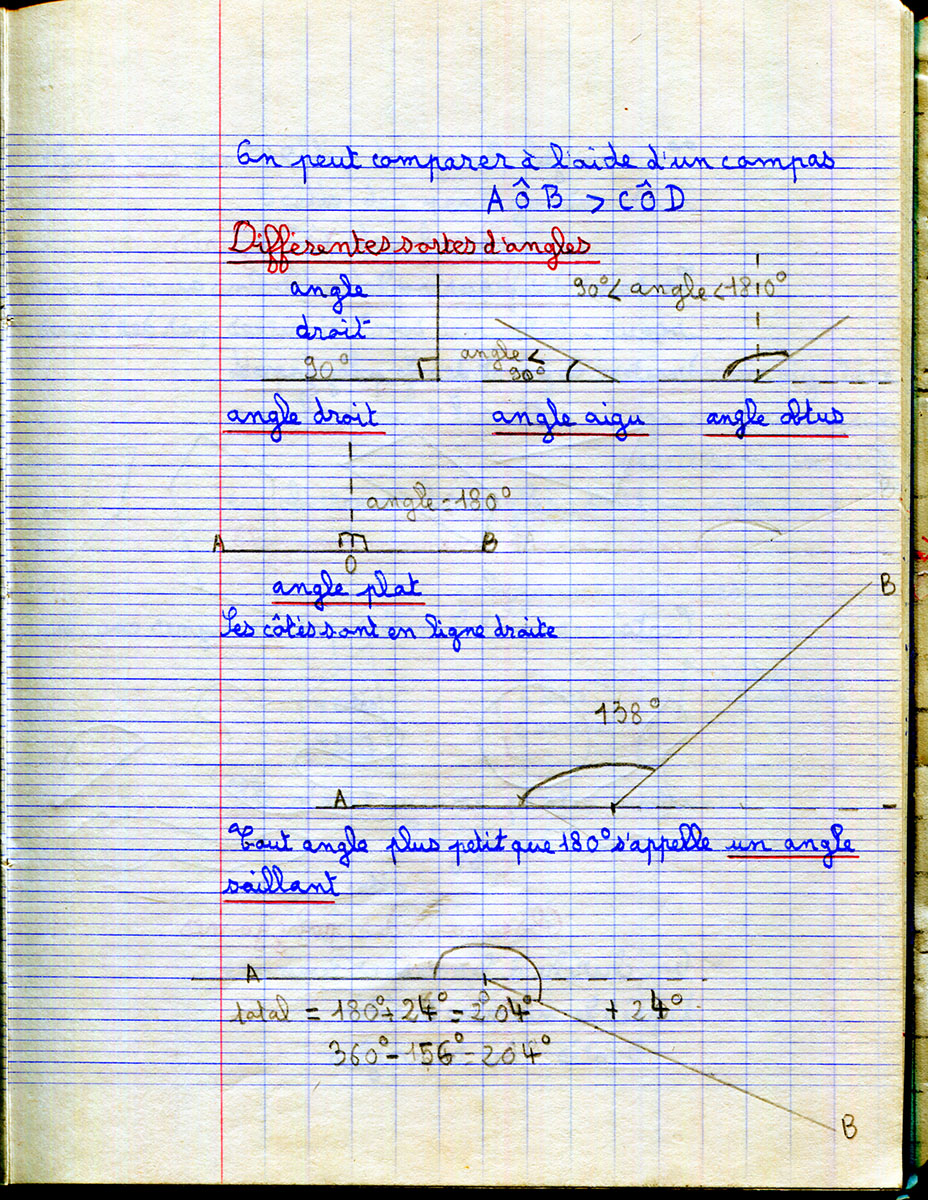 On peut comparer à l'aide d'un compas
AÔB > CÔD
Différentes sortes d'angles
angle
droit
90°
angle <
90°
90° < angle < 180°
angle droit
angle aigu
angle obtus
angle = 180°
A
B
O
angle plat
Les côtés sont en ligne droite
B
138°
A
Tout angle plus petit que 180° s'appelle un angle
saillant
A
total = 180° + 24° = 204°
+ 24°
360° - 156° = 204°
B